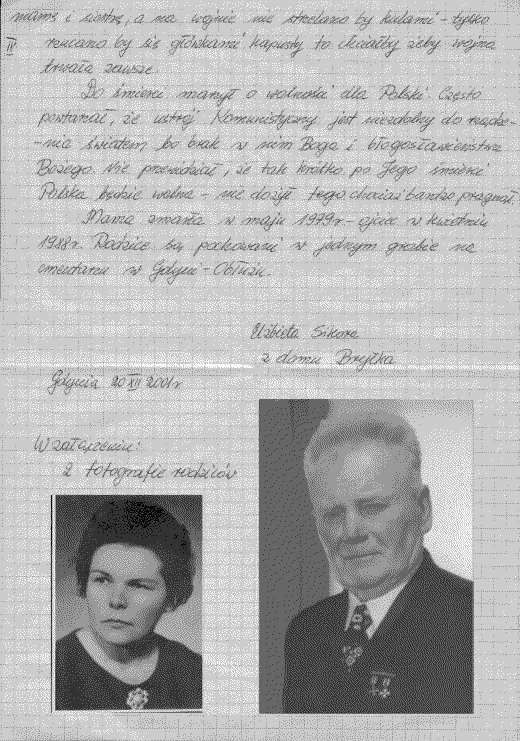 mamę i siostrę, a na wojnie nie strzelano by kulami - tylko
IV rzucano by się główkami kapusty to chciałby żeby wojna
trwała zawsze.
Do śmierci marzył o wolności dla Polski. Często
powtarzał, że ustrój Komunistyczny jest niezdolny do rządze-
-nia światem bo brak w nim Boga i błogosławieństwa
Bożego. Nie przewidział, że tak krótko po Jego śmierci
Polska będzie wolna - nie dożył tego chociaż bardzo pragnął.
Mama zmarła w maju 1979r - ojciec w kwietniu
1988r. Rodzice są pochowani w jednym grobie na
cmentarzu w Gdyni - Obłużu.
Elżbieta Sikora
z domu Bryłka
Gdynia 20 XII 2001r
W załączeniu:
2 fotografie rodziców